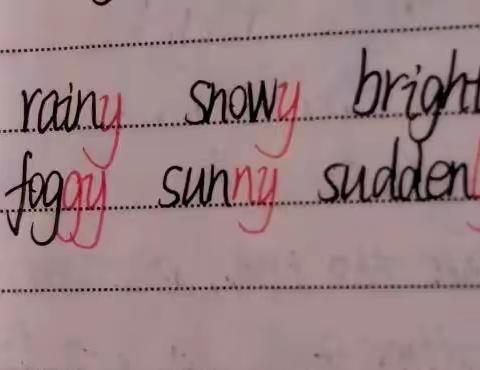 rainy snowy bright
foggy sunny sudden